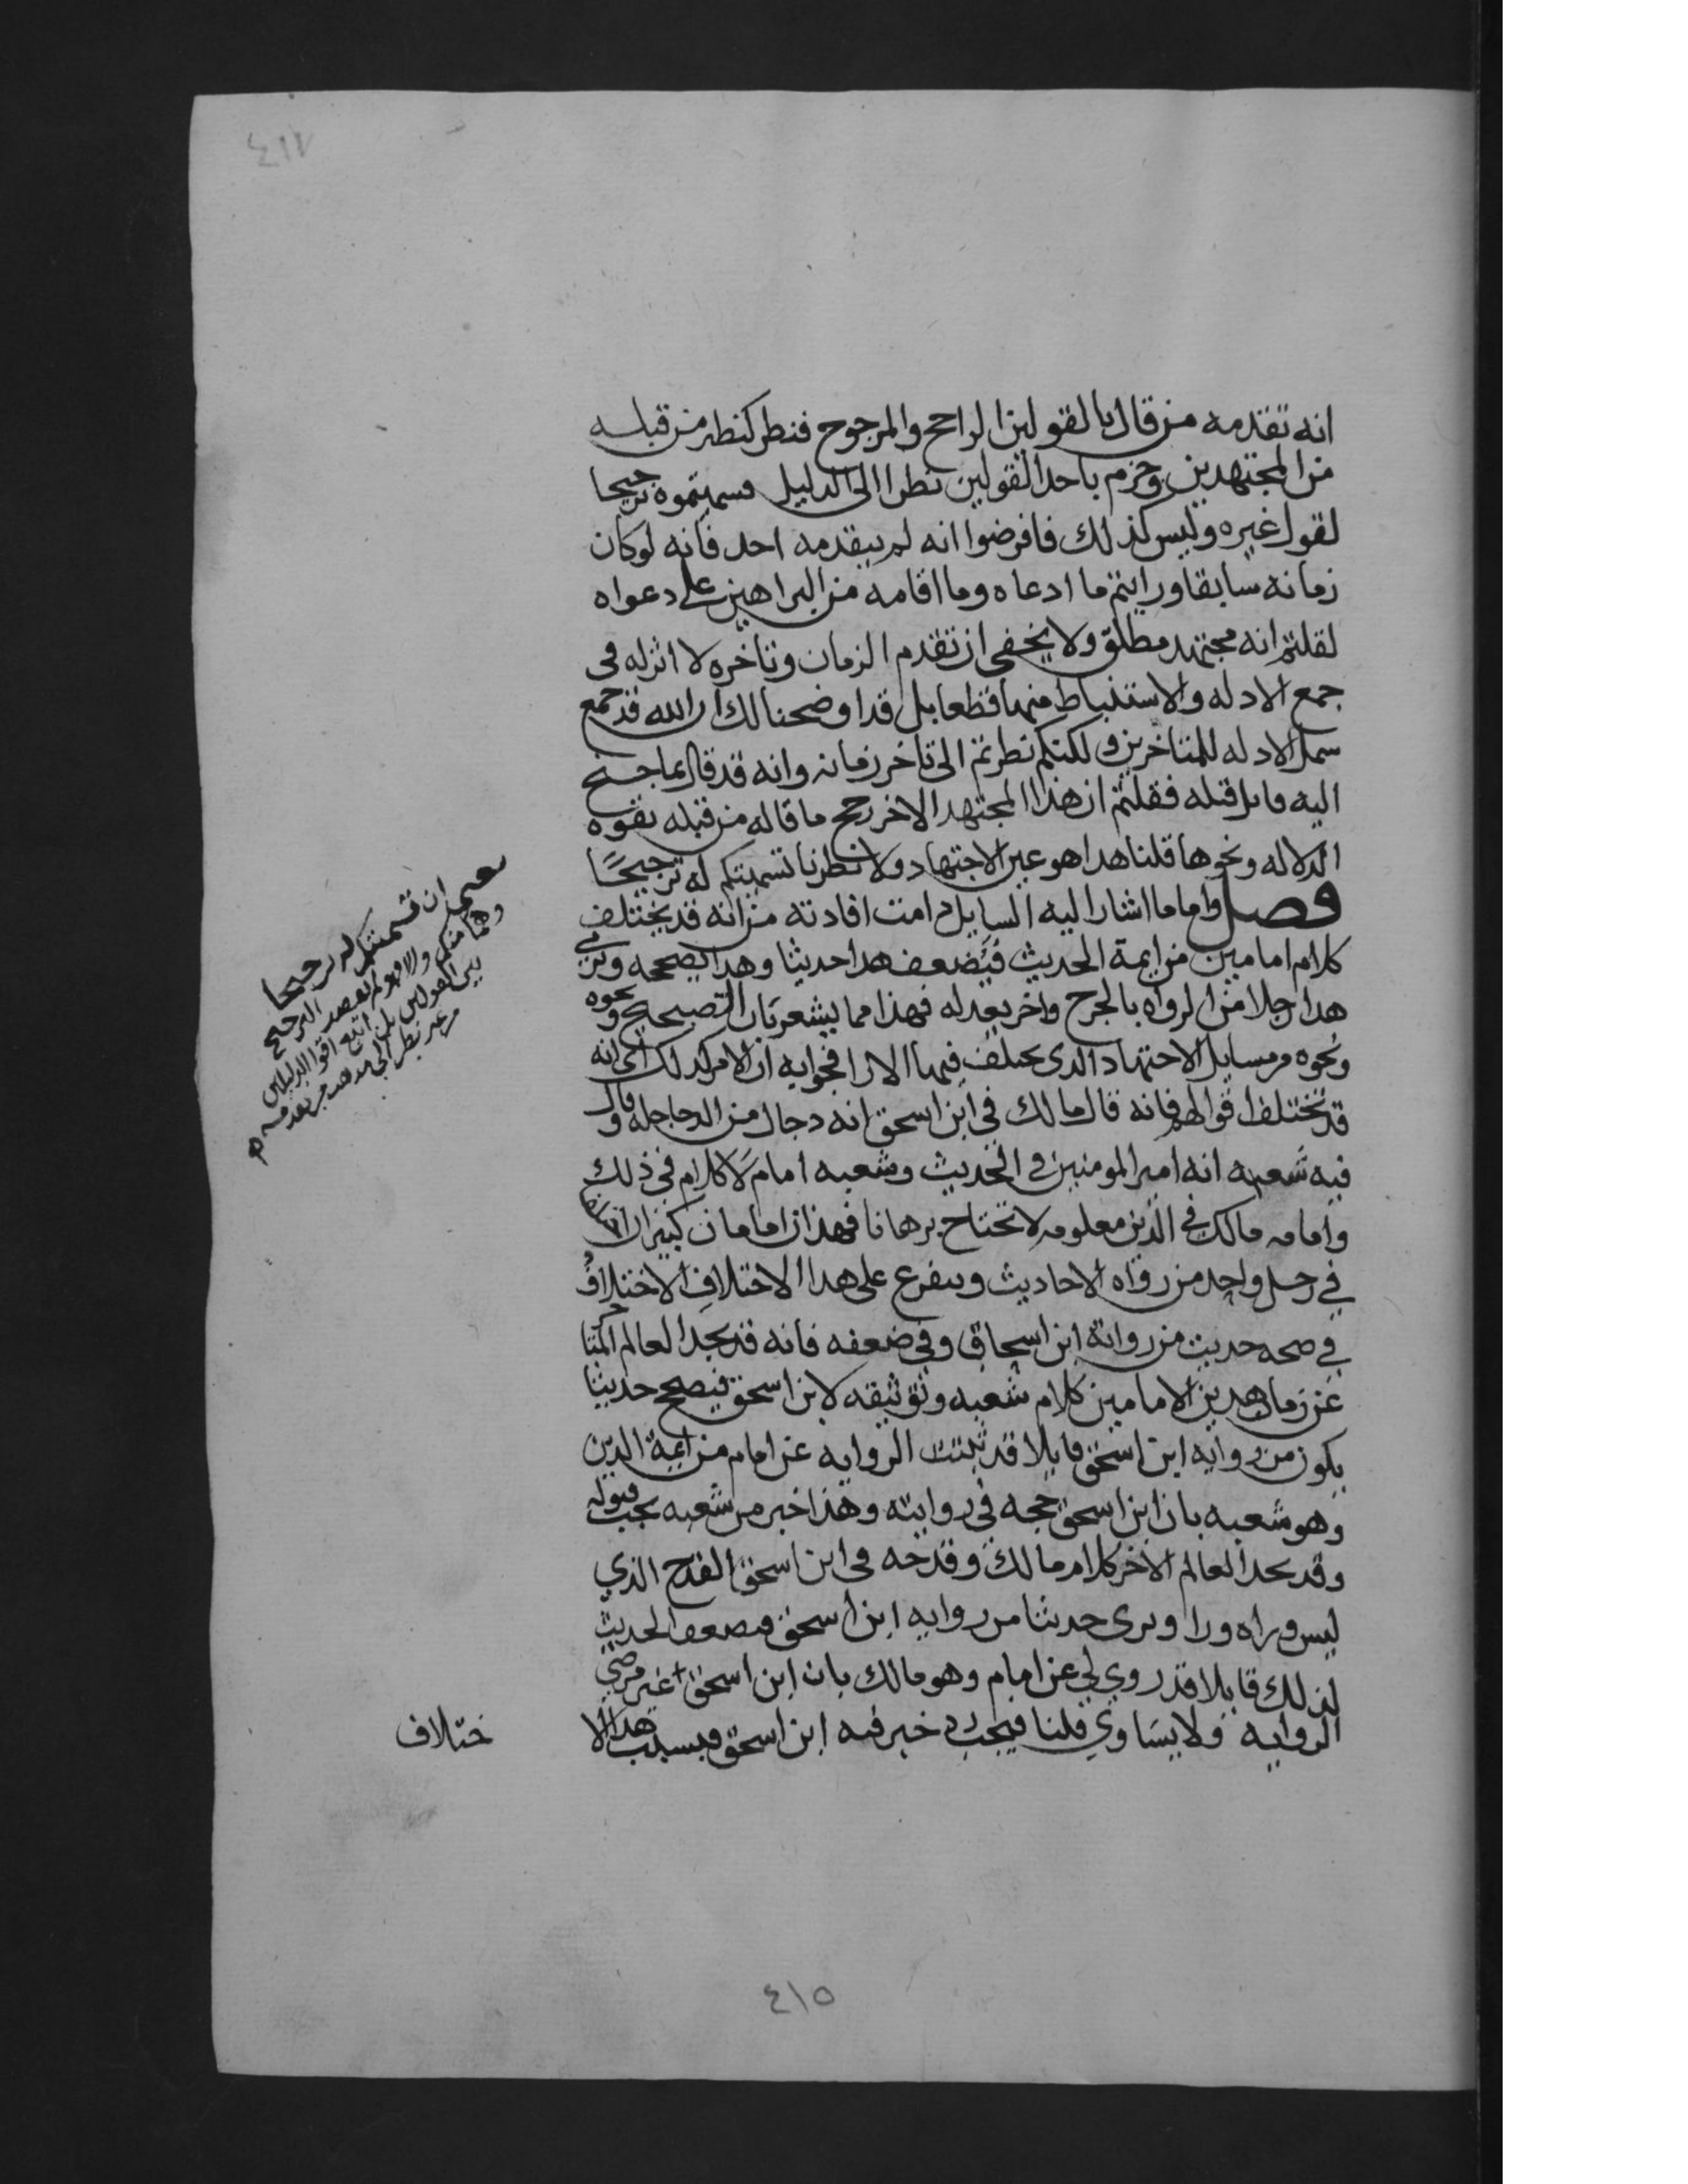 ٤١٧
انه تقدمه من قال بالقولين الراجح والمرجوح فنظر كنظر من قبله
من المجتهدين وجزم باحد القولين نظرا الى الدليل فسميتموه ترجيحا
لقول غيره وليس كذلك فافرضوا انه لم يتقدمه احد فانه لو كان
زمانه سابقا ورايتم ما ادعاه وما اقامه من البراهين على دعواه
لقلتم انه مجتهد مطلق ولا يخفى ان تقدم الزمان وتاخره لا اثر له في
جمع الادله والاستنباط منها قطعا بل قد اوضحنا لك ان الله قد جمع
سمل الادله للمتاخرين ولكنكم نظرتم الى تاخر زمانه وانه قد قال بما جنح
اليه قايل قبله فقلتم ان هذا المجتهد الاخر رجح ما قاله من قبله بقوه
الدلاله ونحوها قلنا هذا هو عين الاجتهاد ولا تضرنا تسميتكم له ترجيحًا
فصل واما ما اشار اليه السايل دامت افادته من انه قد يختلف
كلام امامين من ايمة الحديث فيضعف هذا حديثا وهذا يصححه ويرمي
هذا رجلا من الرواه بالجرح واخر يعدله فهذا مما يشعر بان التصحيح ونحوه
ونحوه من مسايل الاجتهاد الذي يختلف فيها الارا فجوابه ان الامر كذلك اي انه
قد تختلف اقوالهم فانه قال مالك في ابن اسحق انه دجال من الدجاجله وقال
فيه شعبه انه امير المومنين في الحديث وشعبه امام لا كلام في ذلك
وامامه مالك في الدين معلومه لا تحتاج برهانا فهذان امامان كبيران اختلفا
في رجل واحد من رواه الاحاديث ويتفرع على هذا الاختلاف الاختلاف
في صحه حديث من رواية ابن اسحاق وفي ضعفه فانه قد يجد العالم المتاخر
عن زمان هذين الامامين كلام شعبه وتوثيقه لابن اسحق فيصحح حديثا
يكون من روايه ابن اسحق قايلا قد ثبتت الروايه عن امام من ايمة الدين
وهو شعبه بان ابن اسحق حجه في روايته وهذا خبر من شعبه يجب قبوله
وقد يجد العالم الاخر كلام مالك وقدحه في ابن اسحق القدح الذي
ليس وراه ورا ويرى حديثا من روايه ابن اسحق فيضعف الحديث
لذلك قايلا قد روي لي عن امام وهو مالك بان ابن اسحق غير مرضي
الروايه ولا يساوي فلسا فيجب رد خبر فيه ابن اسحق فبسبب هذا الا
ختلاف
تسميتكم له ترجيحا
وهما منكم والا فهو لم يقصد الترجيح
بين القولين بل اتبع اقوا الدليلين
من غير نظر الى مذهب من تقدمه
٤١٥